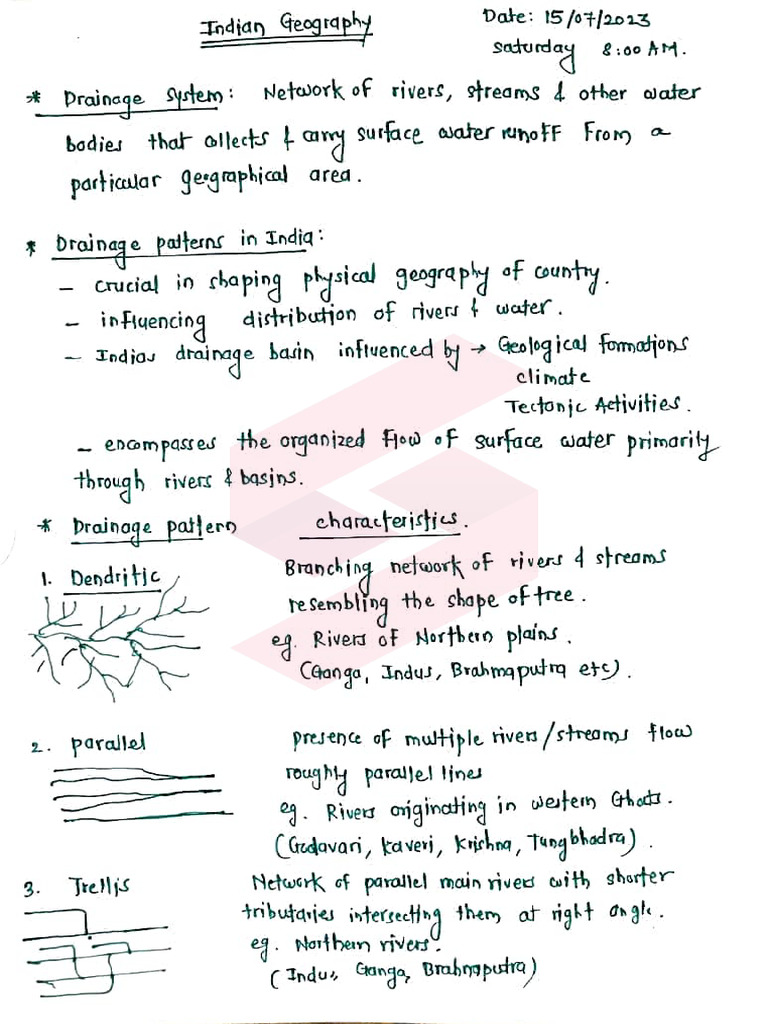 Indian Geography
Date: 15/07/2023
Saturday 8:00 AM.
* Drainage System: Network of rivers, streams & other water
bodies that collects & carry surface water runoff From a
particular geographical area.
* Drainage patterns in India:
- crucial in shaping physical geography of country.
- influencing distribution of rivers & water.
- Indias drainage basin influenced by → Geological formations
climate
Tectonic Activities.
- encompasses the organized flow of surface water primarily
through rivers & basins.
* Drainage pattern characteristics.
1. Dendritic
Branching network of rivers & streams
resembling the shape of tree.
eg. Rivers of Northern plains.
(Ganga, Indus, Brahmaputra etc).
2. parallel
presence of multiple rivers/streams flow
roughly parallel lines
eg. Rivers originating in western Ghats.
(Godavari, Kaveri, Krishna, Tungbhadra).
3. Trellis
Network of parallel main rivers with shorter
tributaries intersecting them at right angle.
eg. Northern rivers.
(Indus, Ganga, Brahmaputra)